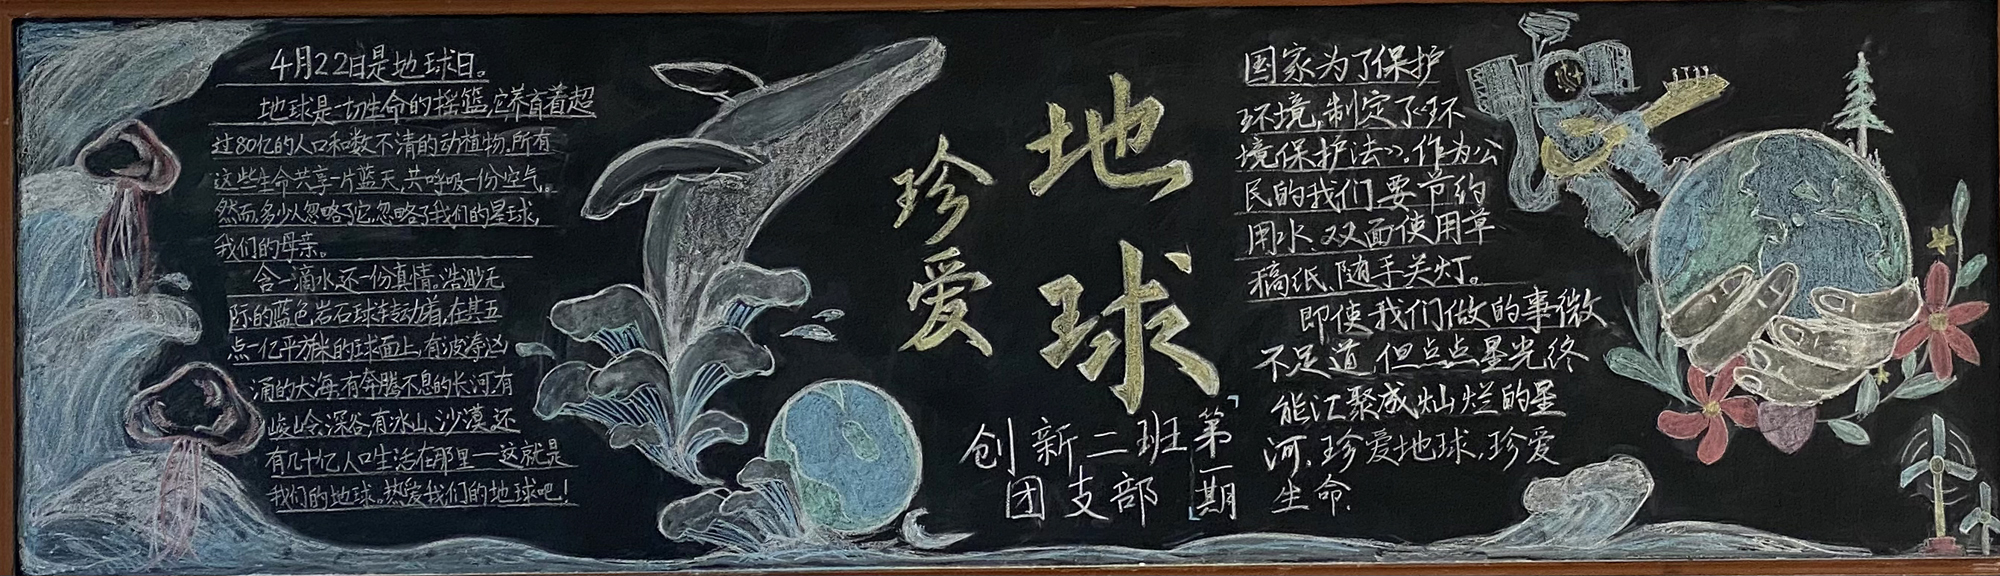 4月22日是地球日。
地球是一切生命的摇篮,它养育着超
过80亿的人口和数不清的动植物.所有
这些生命共享一片蓝天,共呼吸一份空气。
然而,多少人忽略了它,忽略了我们的星球,
我们的母亲。
含一滴水还一份真情。浩渺无
际的蓝色岩石球转动着,在其五
点一亿平方米的球面上,有波涛汹
涌的大海,有奔腾不息的长河有
峻岭、深谷,有冰山、沙漠,还
有几十亿人口生活在那里——这就是
我们的地球。热爱我们的地球吧!
珍爱
地球
创新二班
团支部
第一期
国家为了保护
环境,制定了《环
境保护法》。作为公
民的我们要节约
用水,双面使用草
稿纸,随手关灯。
即使我们做的事微
不足道,但点点星光,终
能汇聚成灿烂的星
河.珍爱地球,珍爱
生命.